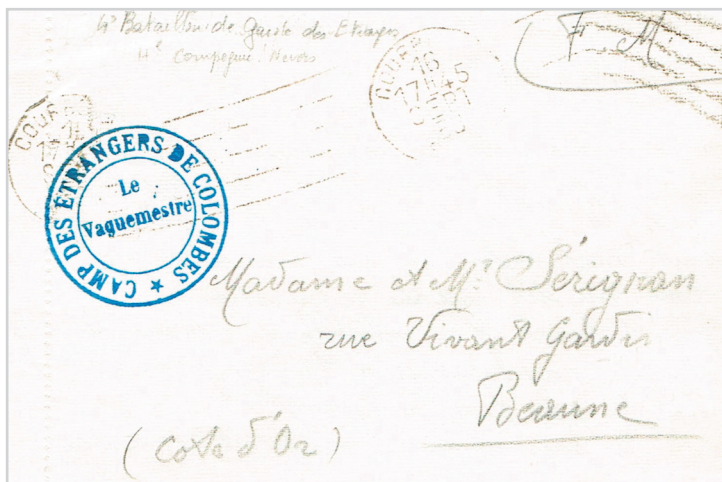 4e Bataillon de Garde des Etrangers
4e Compagnie Nevers
F M
COURB
16
17H45
CAMP DES ÉTRANGERS DE COLOMBES ★
Le
Vaguemestre
Madame et Mr Sérignan
rue Vivant Gardin
Beaune
(Cote d'Or)